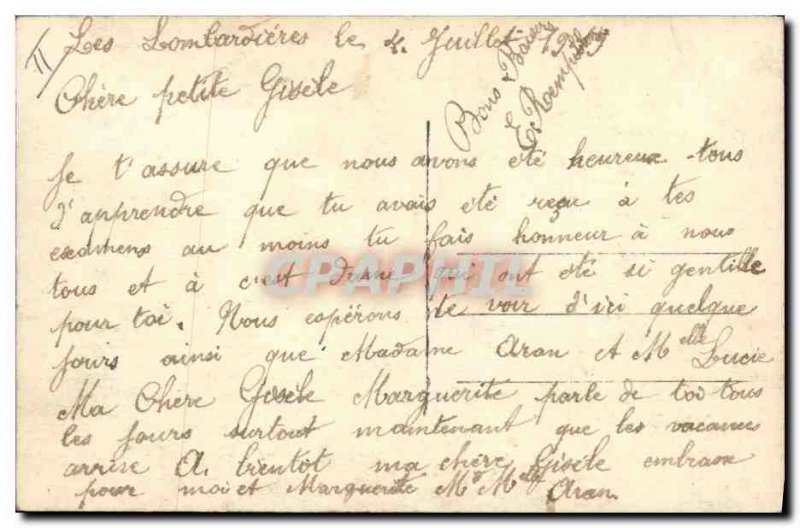 Les Lombardières le 4 Juillet
Chère petite Gisèle
Bons Baisers
E.
Je t'assure que nous avons été heureux tous
d'apprendre que tu avais été reçu à tes
examens au moins tu fais honneur à nous
tous et à c'est dame qui ont été si gentille
pour toi. Nous espérons te voir d'ici quelque
jours ainsi que Madame Aran et Melle Lucie
Ma Chere Gisèle Marguerite parle de toi tous
les jours surtout maintenant que les vacances
arrive A. bientôt ma chère Gisèle embrasse
pour moi et Marguerite Me Melle
Aran
CPAPHIL